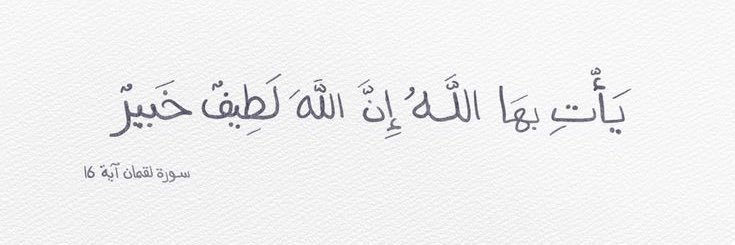 يَأْتِ بِهَا اللَّهُ إِنَّ اللَّهَ لَطِيفٌ خَبِيرٌ
سورة لقمان آية 16